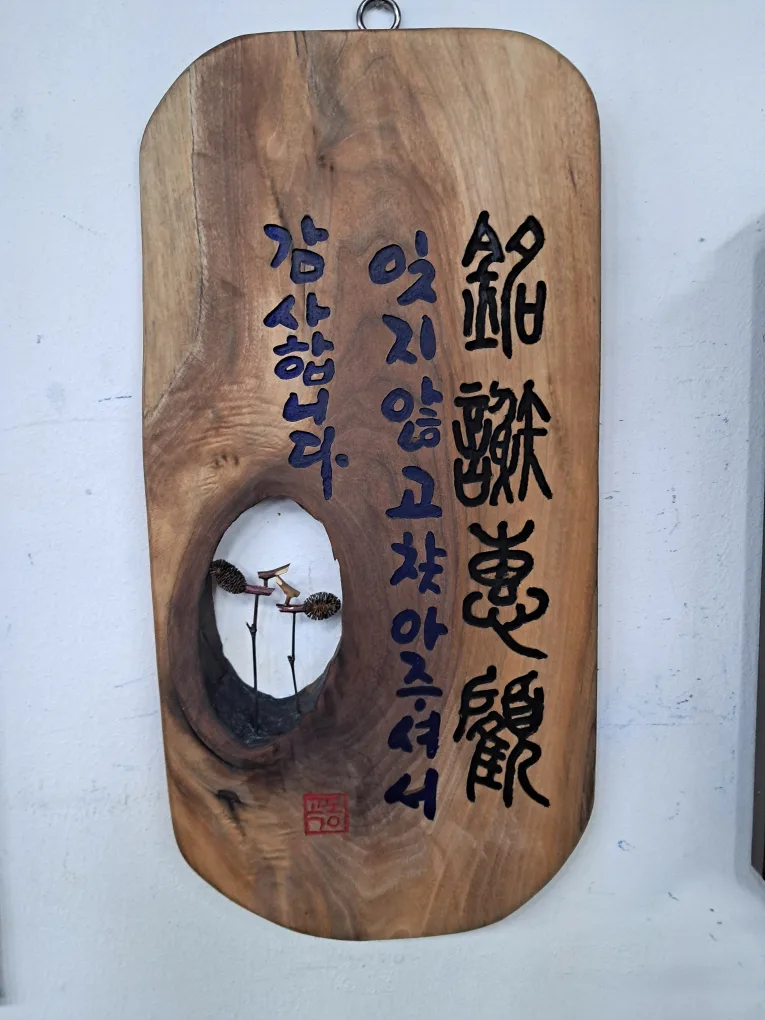 銘謝惠顧
잊지않고찾아주셔서
감사합니다.